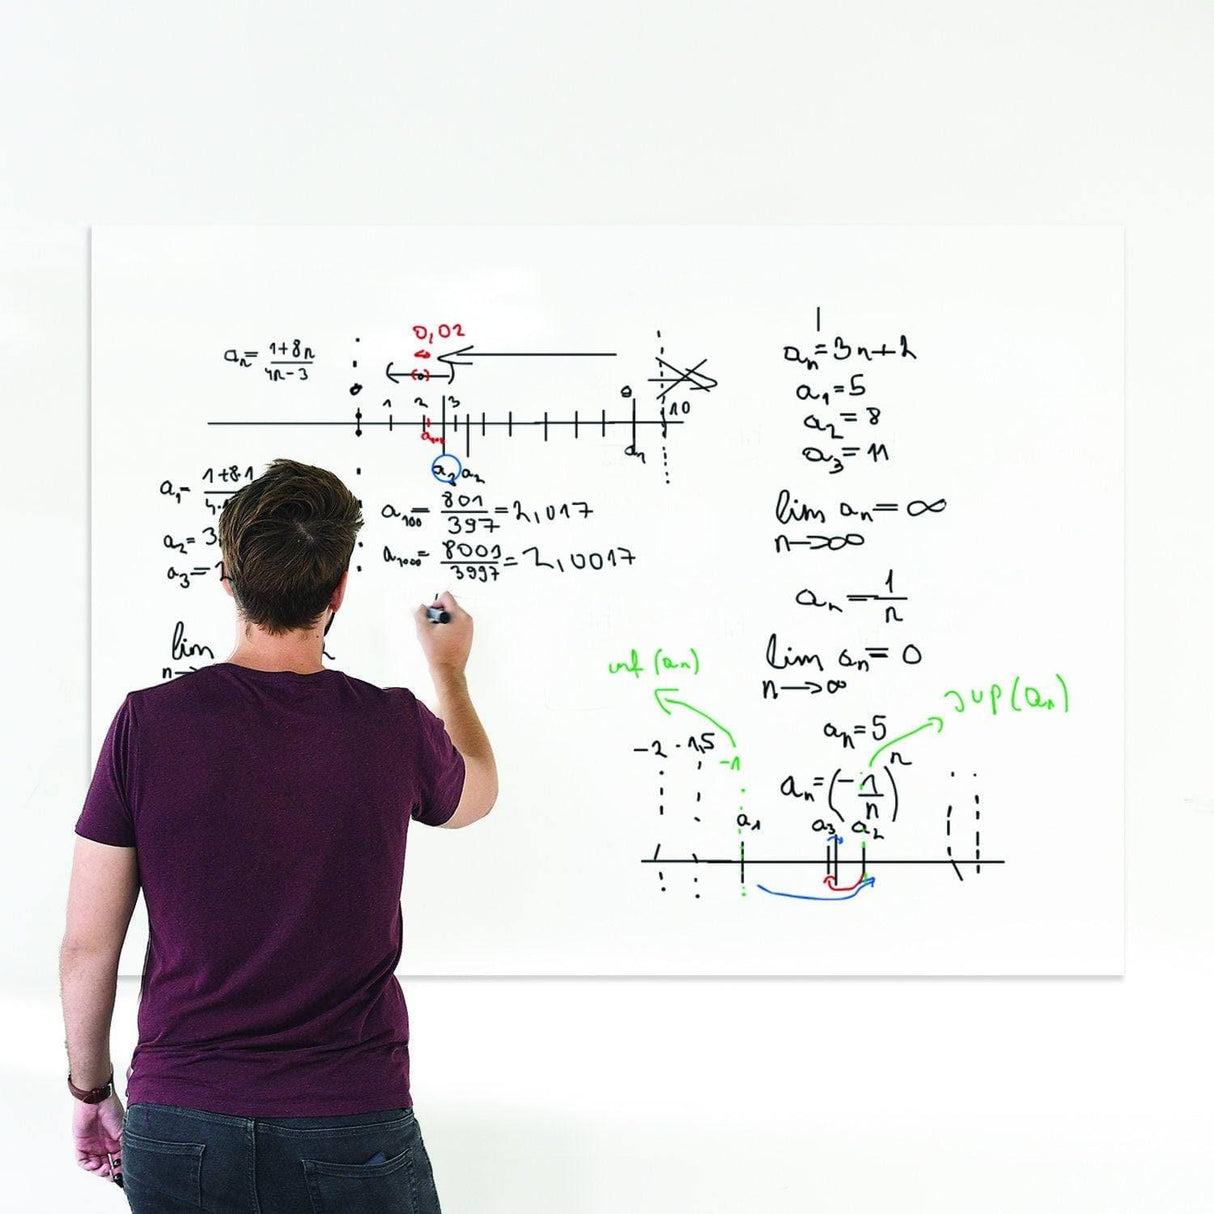 aₙ = (1+8n)/(4n-3)
0,02
1 2 3 10
a₁
a₂
a₁ = 1+8·1
a₂ = 3,
a₃ =
a₁₀₀ = 801/397 = 2,017
a₁₀₀₀ = 8001/3997 = 2,0017
lim
n→
aₙ = 3n+2
a₁ = 5
a₂ = 8
a₃ = 11
lim aₙ = ∞
n→∞
aₙ = 1/n
lim aₙ = 0
n→∞
inf(aₙ)
sup(aₙ)
aₙ = 5
-2 -1,5 -1
aₙ = (-1/n)ⁿ
a₁ a₃ a₂